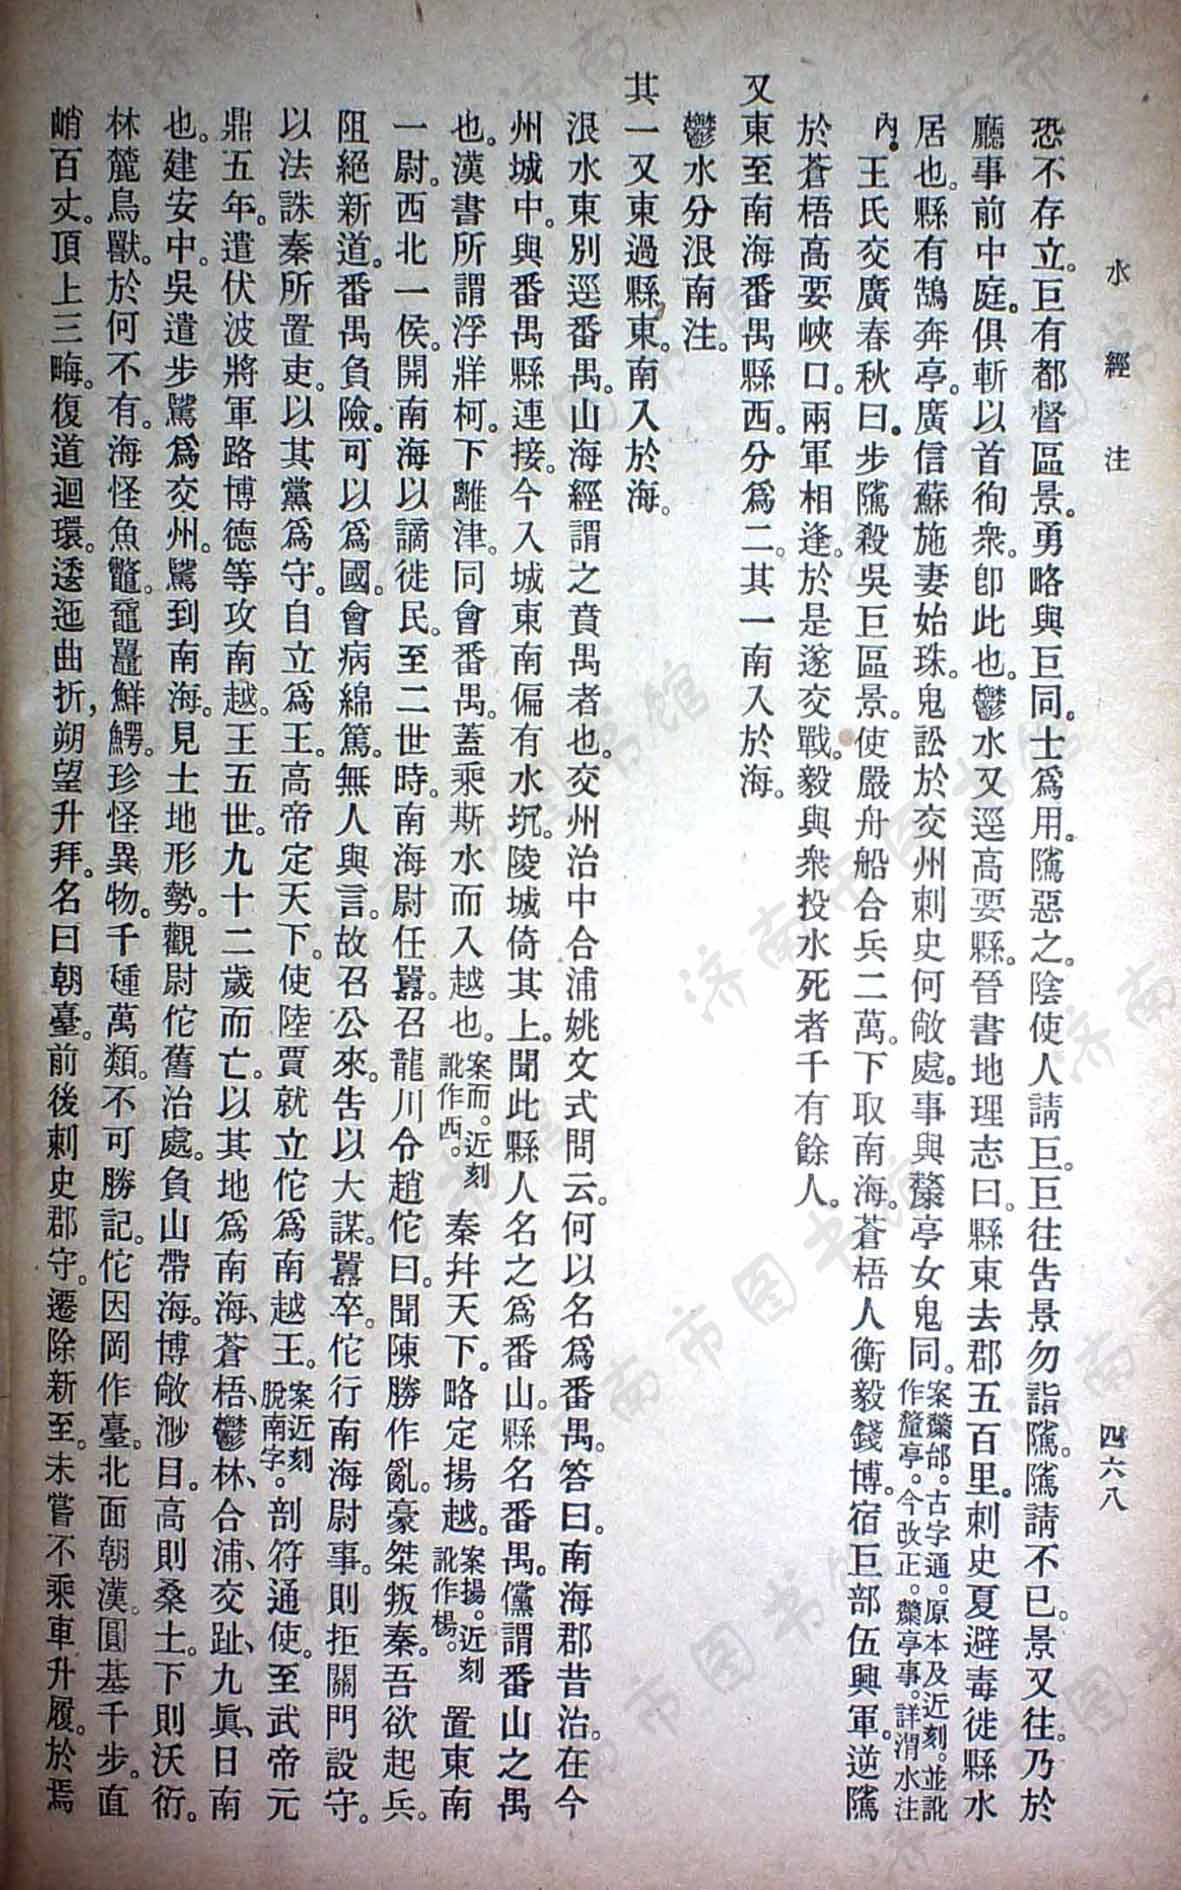 水經注
四六八
恐不存立。巨有都督區景。勇略與巨同。士爲用。隲惡之。陰使人請巨。巨往告景勿詣隲。隲請不已。景又往。乃於
廳事前中庭。俱斬以首徇衆。卽此也。鬱水又逕高要縣。晉書地理志曰。縣東去郡五百里。刺史夏避毒徙縣水
居也。縣有鵠奔亭。廣信蘇施妻始珠。鬼訟於交州刺史何敞處。事與斄亭女鬼同。案斄邰。古字通。原本及近刻。並訛作釐亭。今改正。斄亭事。詳渭水注
內。王氏交廣春秋曰。步隲殺吳巨區景。使嚴舟船合兵二萬。下取南海。蒼梧人衡毅錢博。宿巨部伍興軍。逆隲
於蒼梧高要峽口。兩軍相逢。於是遂交戰。毅與衆投水死者千有餘人。
又東至南海番禺縣西。分爲二。其一南入於海。
鬱水分浪南注。
其一又東過縣東。南入於海。
浪水東別逕番禺。山海經謂之賁禺者也。交州治中合浦姚文式問云。何以名爲番禺。答曰。南海郡昔治。在今
州城中。與番禺縣連接。今入城東南偏有水坈。陵城倚其上。聞此縣人名之爲番山。縣名番禺。儻謂番山之禺
也。漢書所謂浮牂柯。下離津。同會番禺。蓋乘斯水而入越也。案而。近刻訛作西。秦幷天下。略定揚越。案揚。近刻訛作楊。置東南
一尉。西北一侯。開南海以謫徙民。至二世時。南海尉任囂。召龍川令趙佗曰。聞陳勝作亂。豪桀叛秦。吾欲起兵。
阻絕新道。番禺負險。可以爲國。會病綿篤。無人與言。故召公來。告以大謀。囂卒。佗行南海尉事。則拒關門設守。
以法誅秦所置吏。以其黨爲守。自立爲王。高帝定天下。使陸賈就立佗爲南越王。案近刻脫南字。剖符通使。至武帝元
鼎五年。遣伏波將軍路博德等攻南越。王五世。九十二歲而亡。以其地爲南海、蒼梧、鬱林、合浦、交趾、九眞、日南
也。建安中。吳遣步騭爲交州。騭到南海。見土地形勢。觀尉佗舊治處。負山帶海。博敞渺目。高則桑土。下則沃衍。
林麓鳥獸。於何不有。海怪魚鼈。黿鼉鮮鰐。珍怪異物。千種萬類。不可勝記。佗因岡作臺。北面朝漢。圓基千步。直
峭百丈。頂上三畮。復道迴環。逶迤曲折，朔望升拜。名曰朝臺。前後刺史郡守。遷除新至。未嘗不乘車升履。於焉